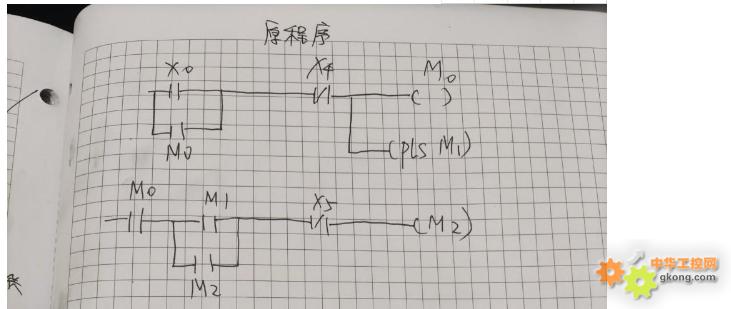 原程序
X0 X4 M0
( )
M0 (PLS M1)
M0 M1 X5 (M2)
M2
中华工控网
gkong.com